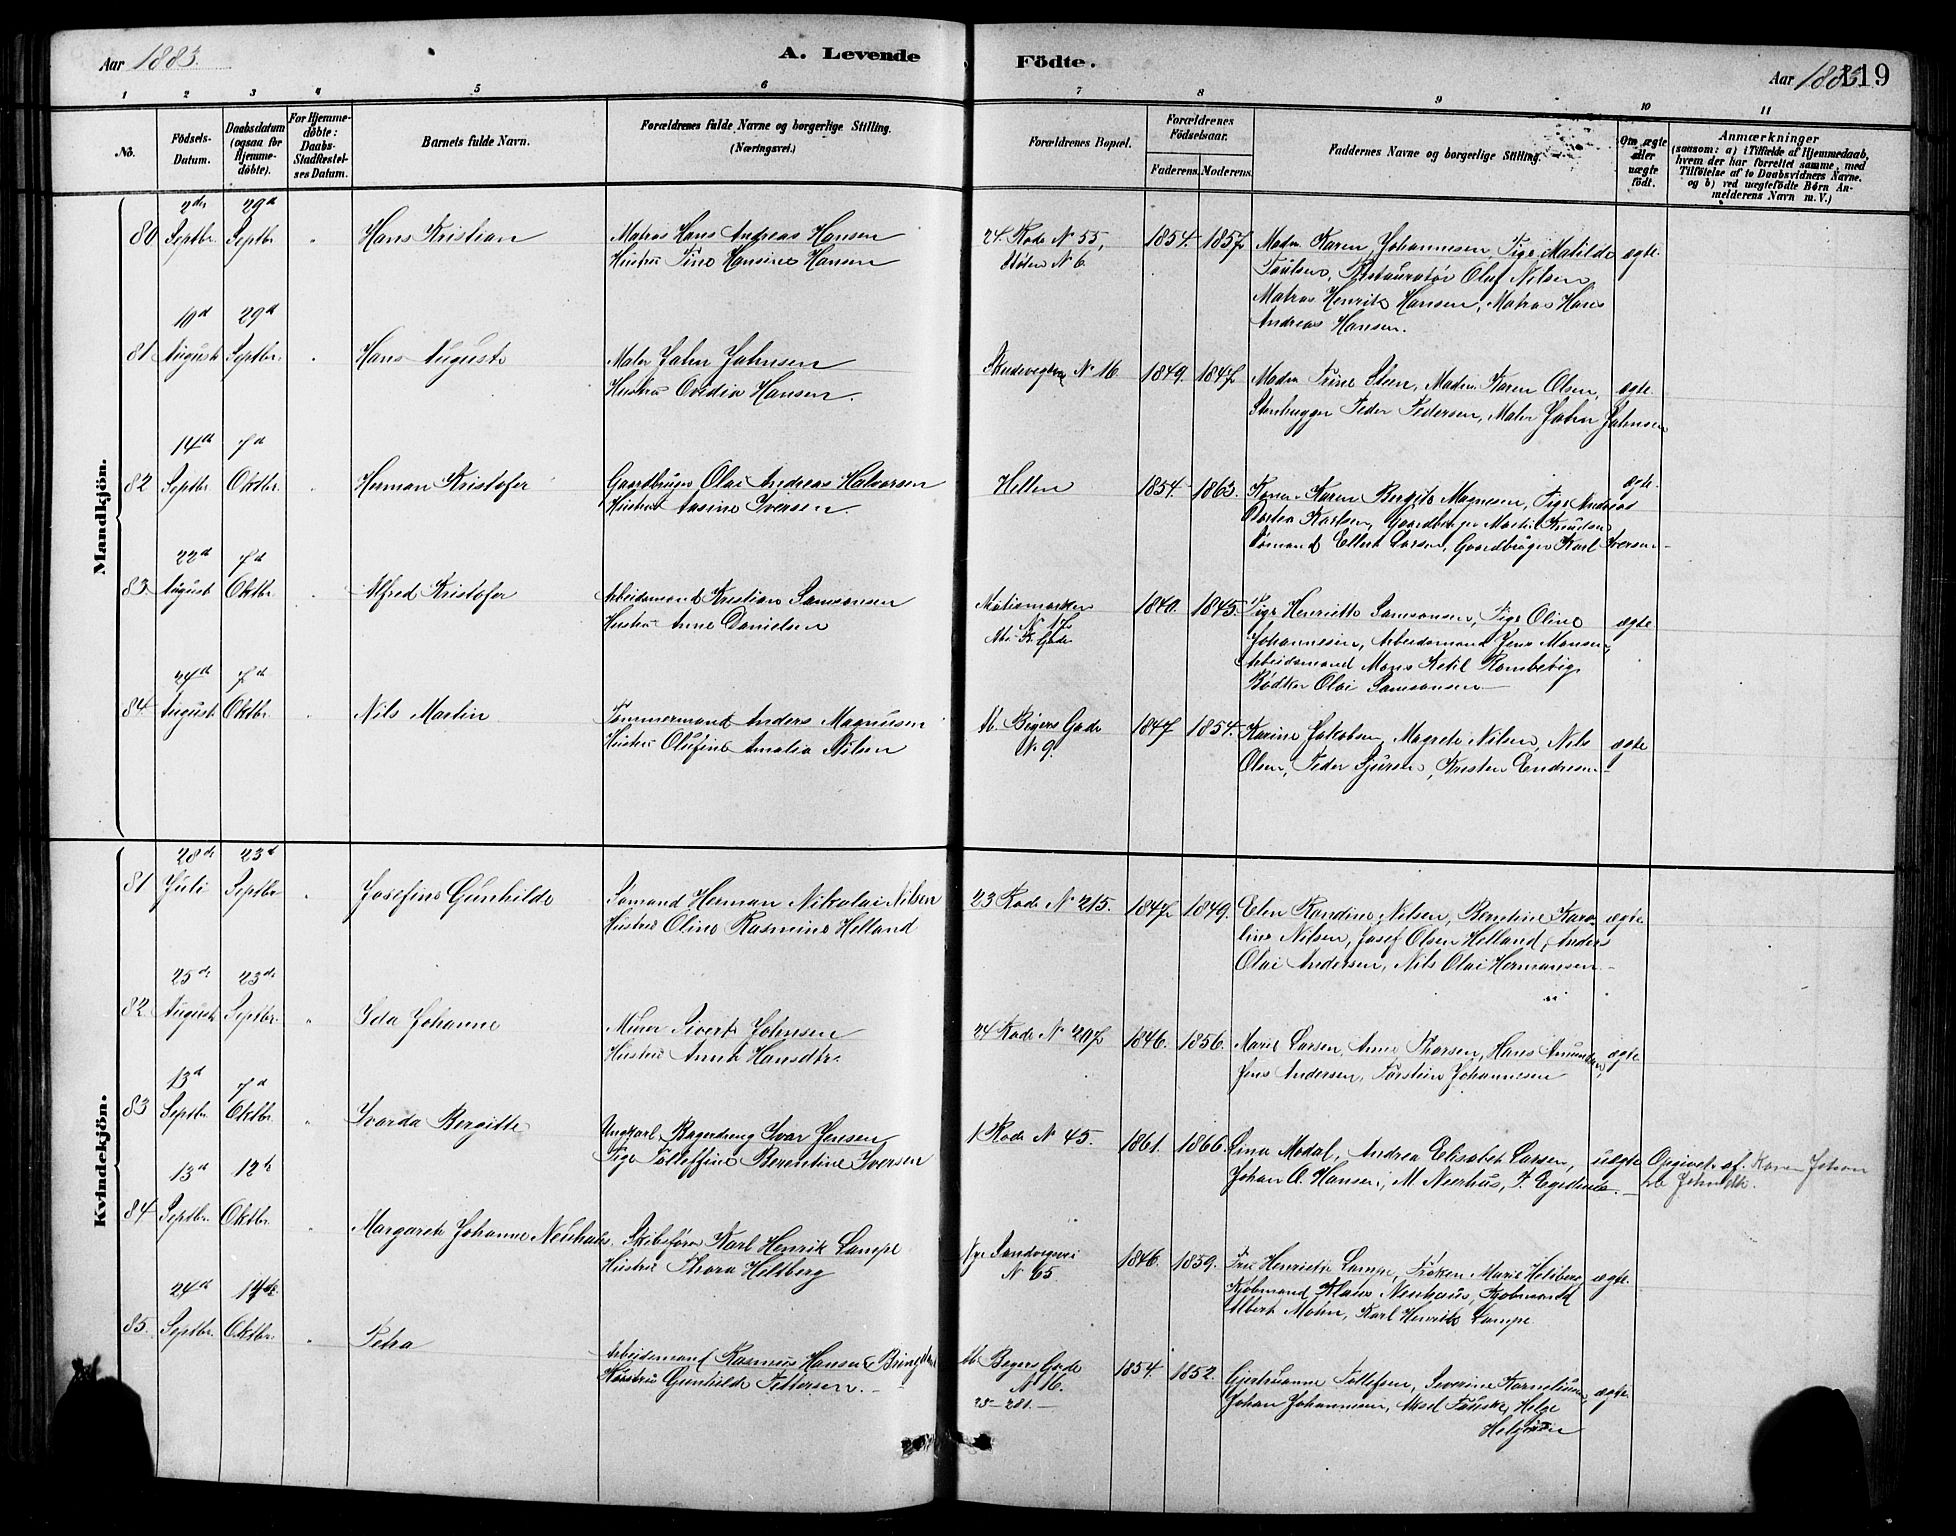 Aar 1883.
A. Levende Födte.
Aar 1883
119
1 2 3 4 5 6 7 8 9 10 11
No.
Födsels-Datum.
Daabsdatum (ogsaa for Hjemme-döbte).
For Hjemme-döbte: Daabs-Stadfæstel-ses Datum.
Barnets fulde Navn.
Forældrenes fulde Navne og borgerlige Stilling. (Næringsvei.)
Forældrenes Bopæl.
Forældrenes Födselsaar.
Faderens. Moderens.
Faddernes Navne og borgerlige Stilling.
Om ægte eller uægte födt.
Anmærkninger
(saasom: a) i Tilfælde af Hjemmedaab,
hvem der har forrettet samme, med
Tilföielse af to Daabsvidners Navne.
og b) ved uægtefödte Börn An-
melderens Navn m. V.)
Mandkjön.
80 2den Septbr. 29d Septbr. " Hans Kristian
Matros Hans Andreas Hansen
Hustru Tine Hansine Hansen
24. Rode N 55,
Stølen N 6.
1854. 1857
Madm. Karen Johannesen, Pige Matilde
Paulsen, Restauratør Oluf Nilsen,
Matros Henrik Hansen, Matros Hans
Andreas Hansen.
ægte.
81 10d August 29d Septbr. " Hans August
Maler John Johnsen
Hustru Ovidia Hansen
N 16.
1849. 1847
Madm. Trine Steen, Madm. Karen Olsen,
Stenhugger Peder Pedersen, Maler John Johnsen
ægte.
82 14d Septbr. 7d Oktbr. " Herman Kristofer
Gaardbruger Olai Andreas Halvorsen
Hustru Aasine Iversen
Hellen
1854. 1863.
Kone Karen Bergite Magnesen, Pige
Karlsen, Gaardbruger Martin Knudsen
Sømand Ellert Larsen, Gaardbruger Karl Iversen
ægte.
83 22d August 7d Oktbr. " Alfred Kristofer
Arbeidsmand Kristian Samsonsen
Hustru Anne Danielsen
N 17
1840. 1845.
Pige Henriette Samsonsen, Pige Oline
Johannesen, Arbeidsmand Jens Monsen,
Arbeidsmand Mons Ketil
Bødker Olai Samsonsen
ægte
84 24d August 7d Oktbr. " Nils Martin
Tømmermand Anders Magnusen
Hustru Olufine Amalia Nilsen
N 9.
1847 1854.
Karine Jakobsen, Magrete Nilsen, Nils
Olsen, Peder Sjursen, Kristen Endresen
ægte
Kvindekjön.
81 28de Juli 23d Septbr Josefine Gunhilde
Sømand Herman Nikolai Nilsen
Hustru Oline Rasmine Helland
23 Rode N 215.
1847 1849.
Elen Randine Nilsen, Berntine Karo-
line Nilsen, Josef Olsen Helland, Anders
Olai Andersen, Nils Olai Hermansen.
ægte
82. 25de August 23de Septbr. " Ida Johanne
Murer Sivert Johnsen
Hustru Anna Hansdtr.
24 Rode N 207
1846. 1856.
Marie Larsen, Anne Thorsen, Hans Amundsen,
Jens Andersen, Torstein Johannesen
ægte
83 13d Septbr. 7d Oktbr. " Ivarda Bergitte
Ungkarl Bagerdreng Ivar Jensen
Pige Tolleffine Berentine Iversen
1 Rode N 45.
1861. 1866.
Lina Modal, Andrea Elisabet Larsen,
Johan O. Hansen, M. Neerhus, P. Egidius.
uægte
Opgivet af Karen
84 13d Septbr. 12te Oktbr. " Margarete Johanne Neuhaus.
Skibsfører Karl Henrik Lampe
Hustru Thora Heltberg
Nye Sandvigsvei
N 65.
1846. 1859.
Fru Henriette Lampe, Frøken Marie Heltberg
Kjøbmand Klaus Neuhaus, Kjøbmand
Albert Mohn, Karl Henrik Lampe
ægte.
85. 24d Septbr. 14de Oktbr. " Petra
Arbeidsmand Rasmus Hansen
Hustru Gunhilde Pettersen.
N 16.
23 - 281.
1854. 1852.
Gjertrudanne Tollefsen, Severine Kornelius
Johan Johannesen, Helge
Helgesen
ægte.